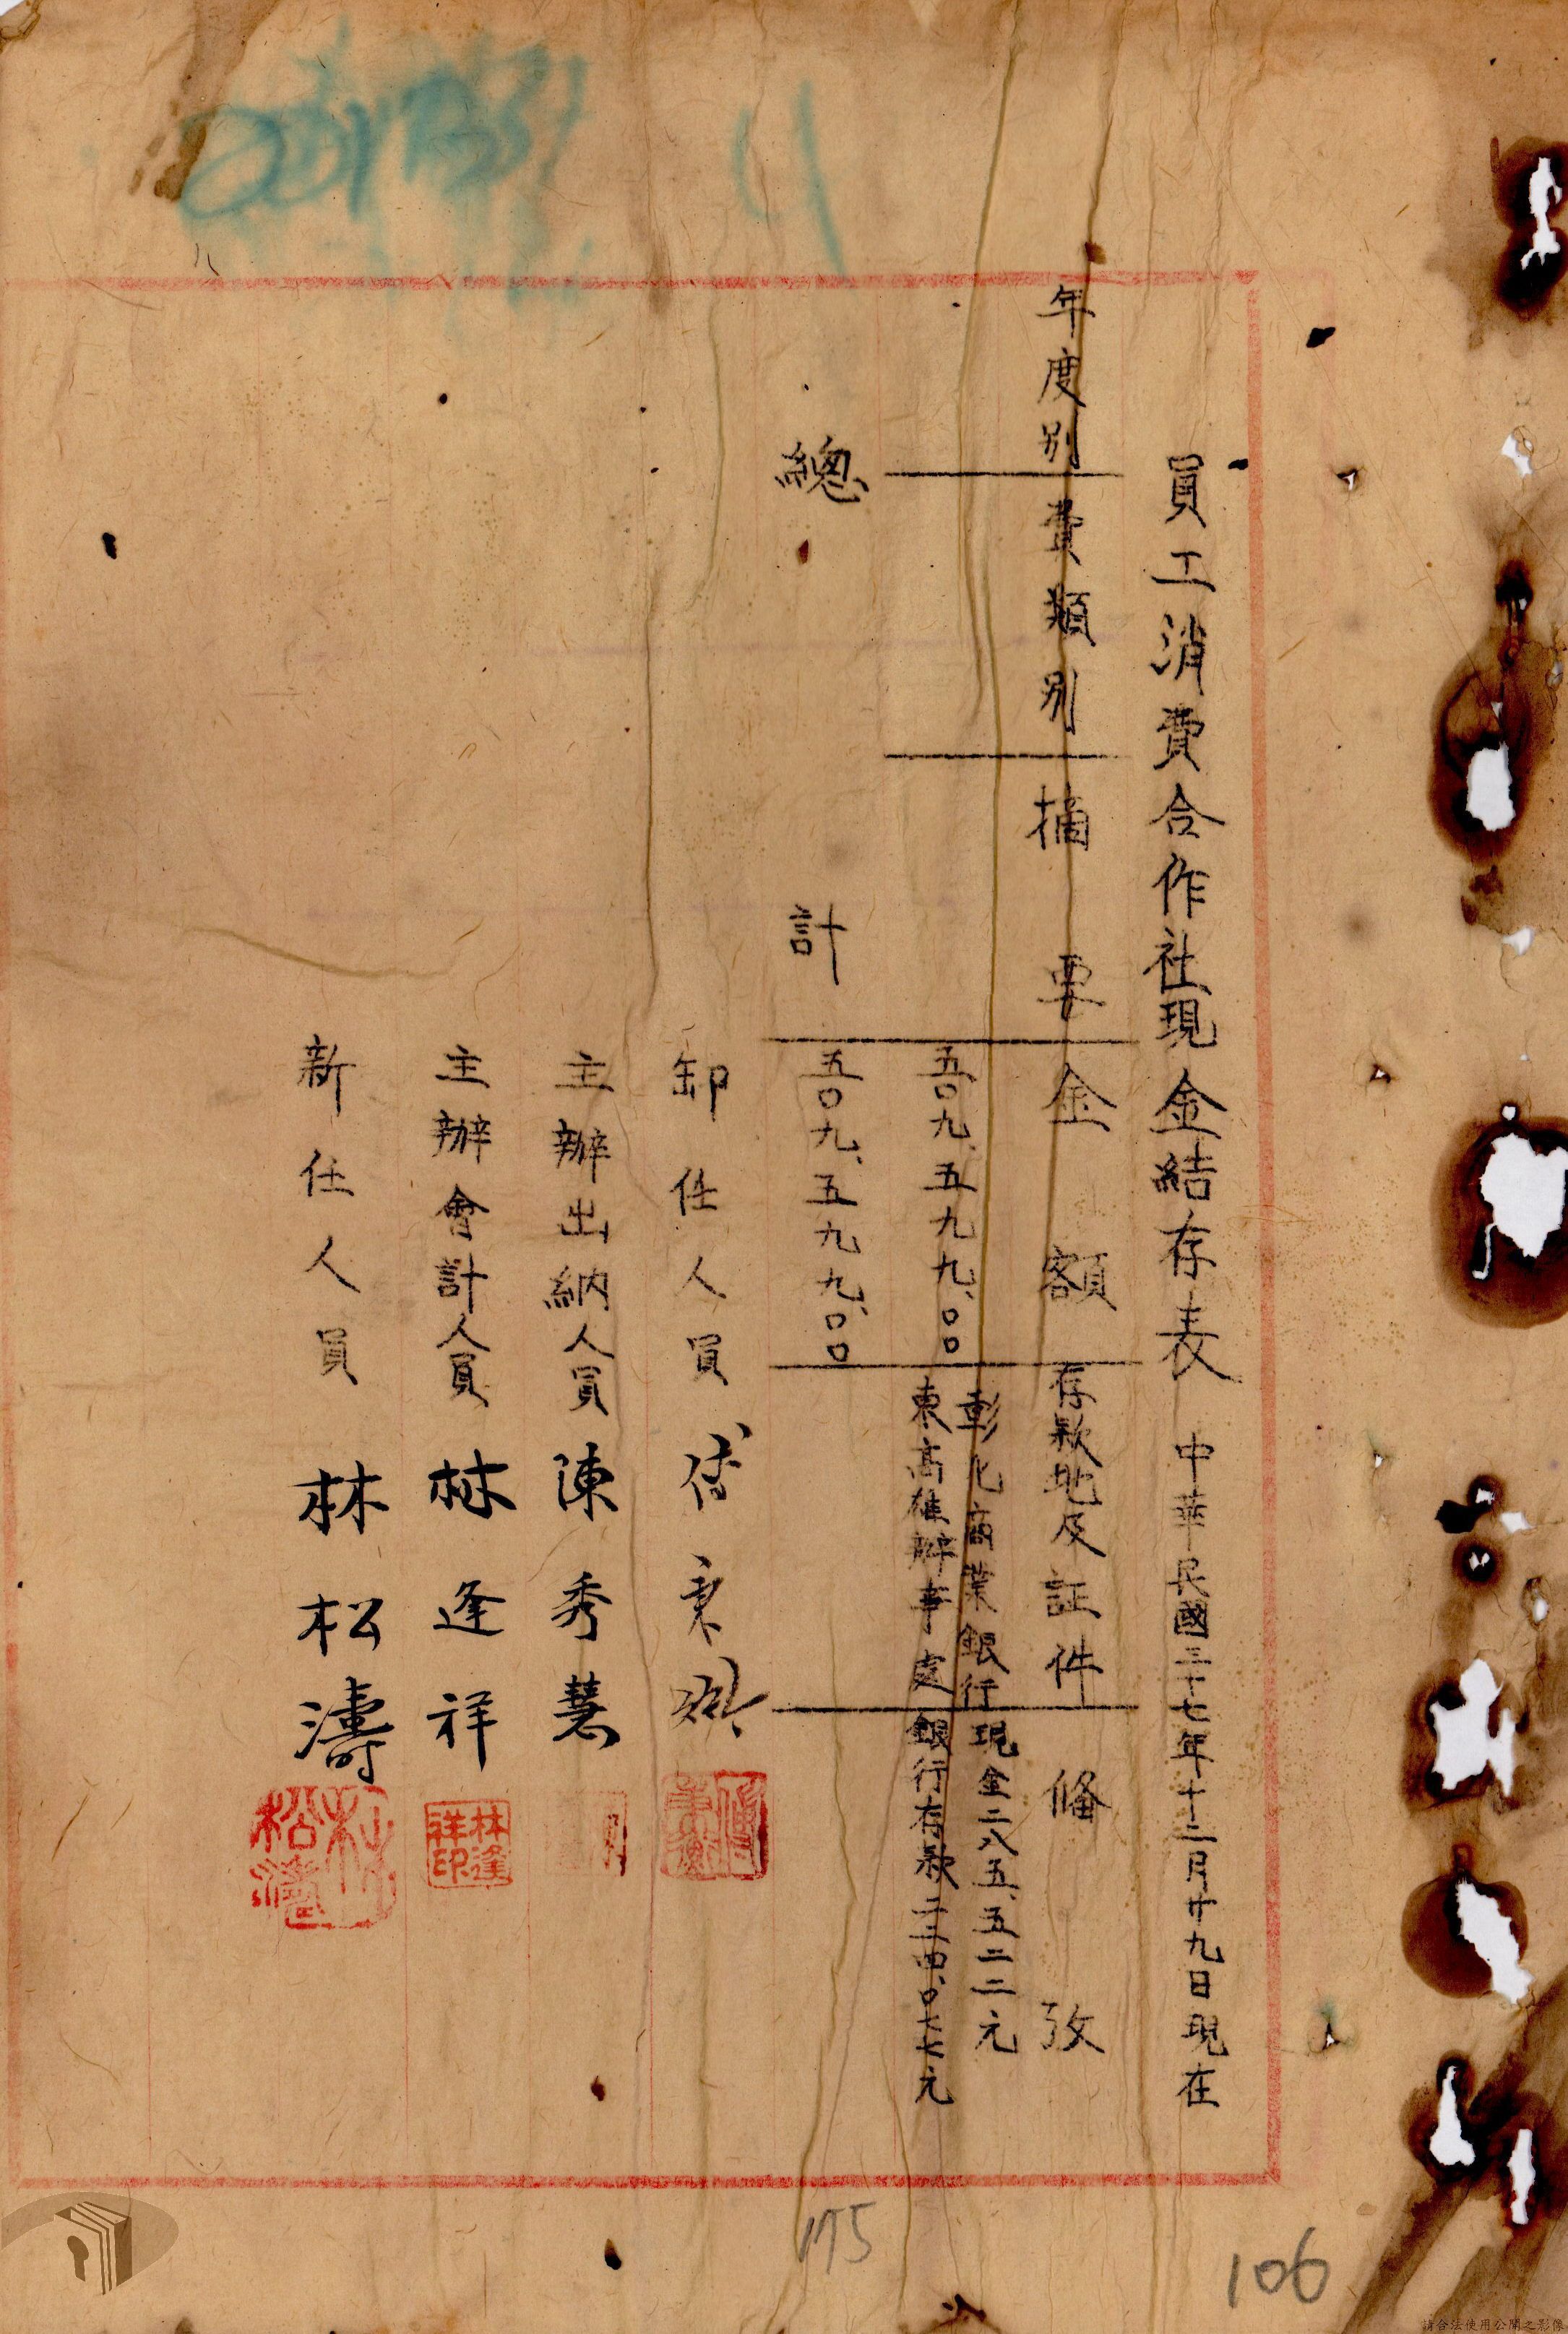 員工消費合作社現金結存表 中華民國三十七年十二月廿九日現在
年度別 費類別 摘要 金額 存款地及証件 備攷
五〇九、五九九、〇〇 彰化商業銀行 現金二八五、五二二元
東高雄辦事處 銀行存款二二四、〇七七元
總計 五〇九、五九九、〇〇
卸任人員 秉
主辦出納人員 陳秀慧
主辦會計人員 林逢祥
林逢祥印
新任人員 林松濤
林松濤
175
106
請合法使用公開之影像